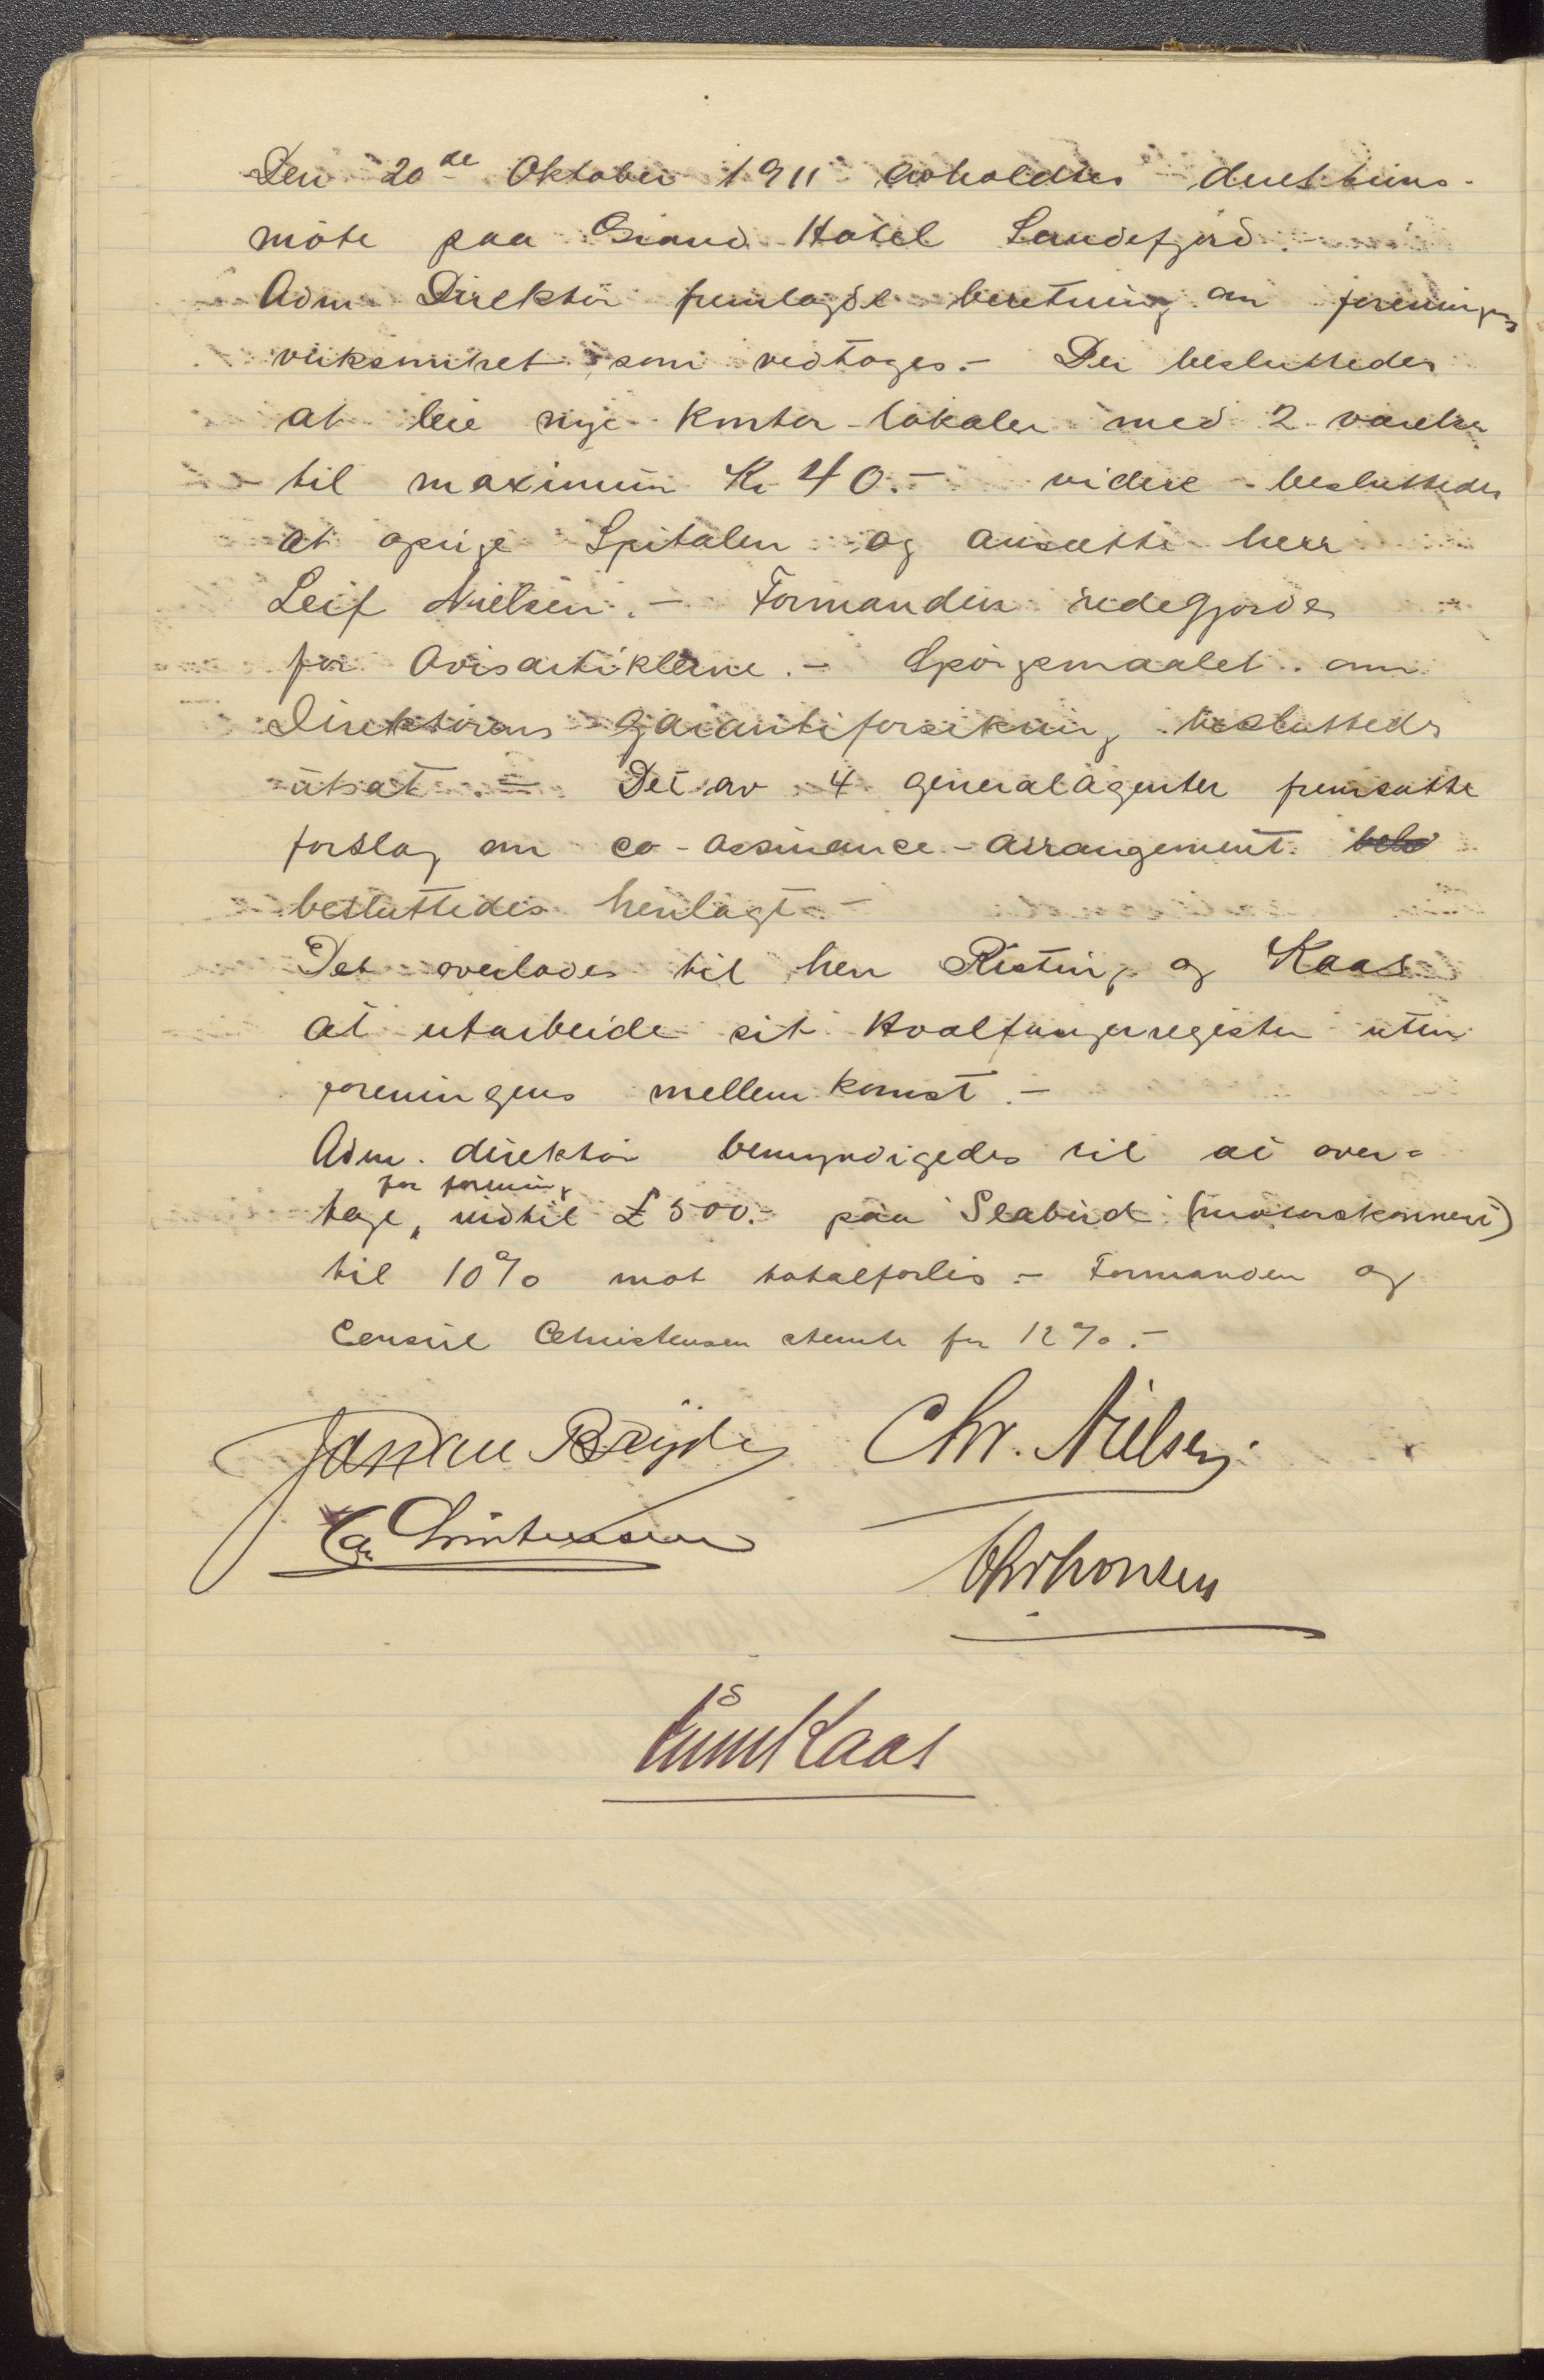 Den 20de Oktober 1911 avholdtes direktions-
møte paa Grand Hotel Sandefjord.-
Adm Direktør fremlagde beretning om foreningens
virksomhet, som vedtoges.- Der besluttedes
at leie nye kontor-lokaler med 2 værelser
til maximum Kr 40.- videre besluttedes
at opsige Spitalen og ansætte herr
Leif Nielsen.- Formanden redegjorde
for Avisartiklerne.- Spørgsmaalet om
Direktørens garantiforsikring besluttedes
utsat.- Det av 4 generalagenter fremsatte
forslag om co-assurance-arrangement
besluttedes henlagt-
Det overlodes til herr Risting og Kaas
at utarbeide sit Hvalfangerregister uten
foreningens mellemkomst.-
Adm. direktør bemyndigedes til at over=
for forening
tage, indtil £ 500.- paa Seabird (motorskonnert)
til 10% mot totalforlis.- Formanden og
Consul Christensen stemte for 12%.-
Johan Bryde Chr. Nielsen
Chr Christensen
Thv Thorsen
Kaas